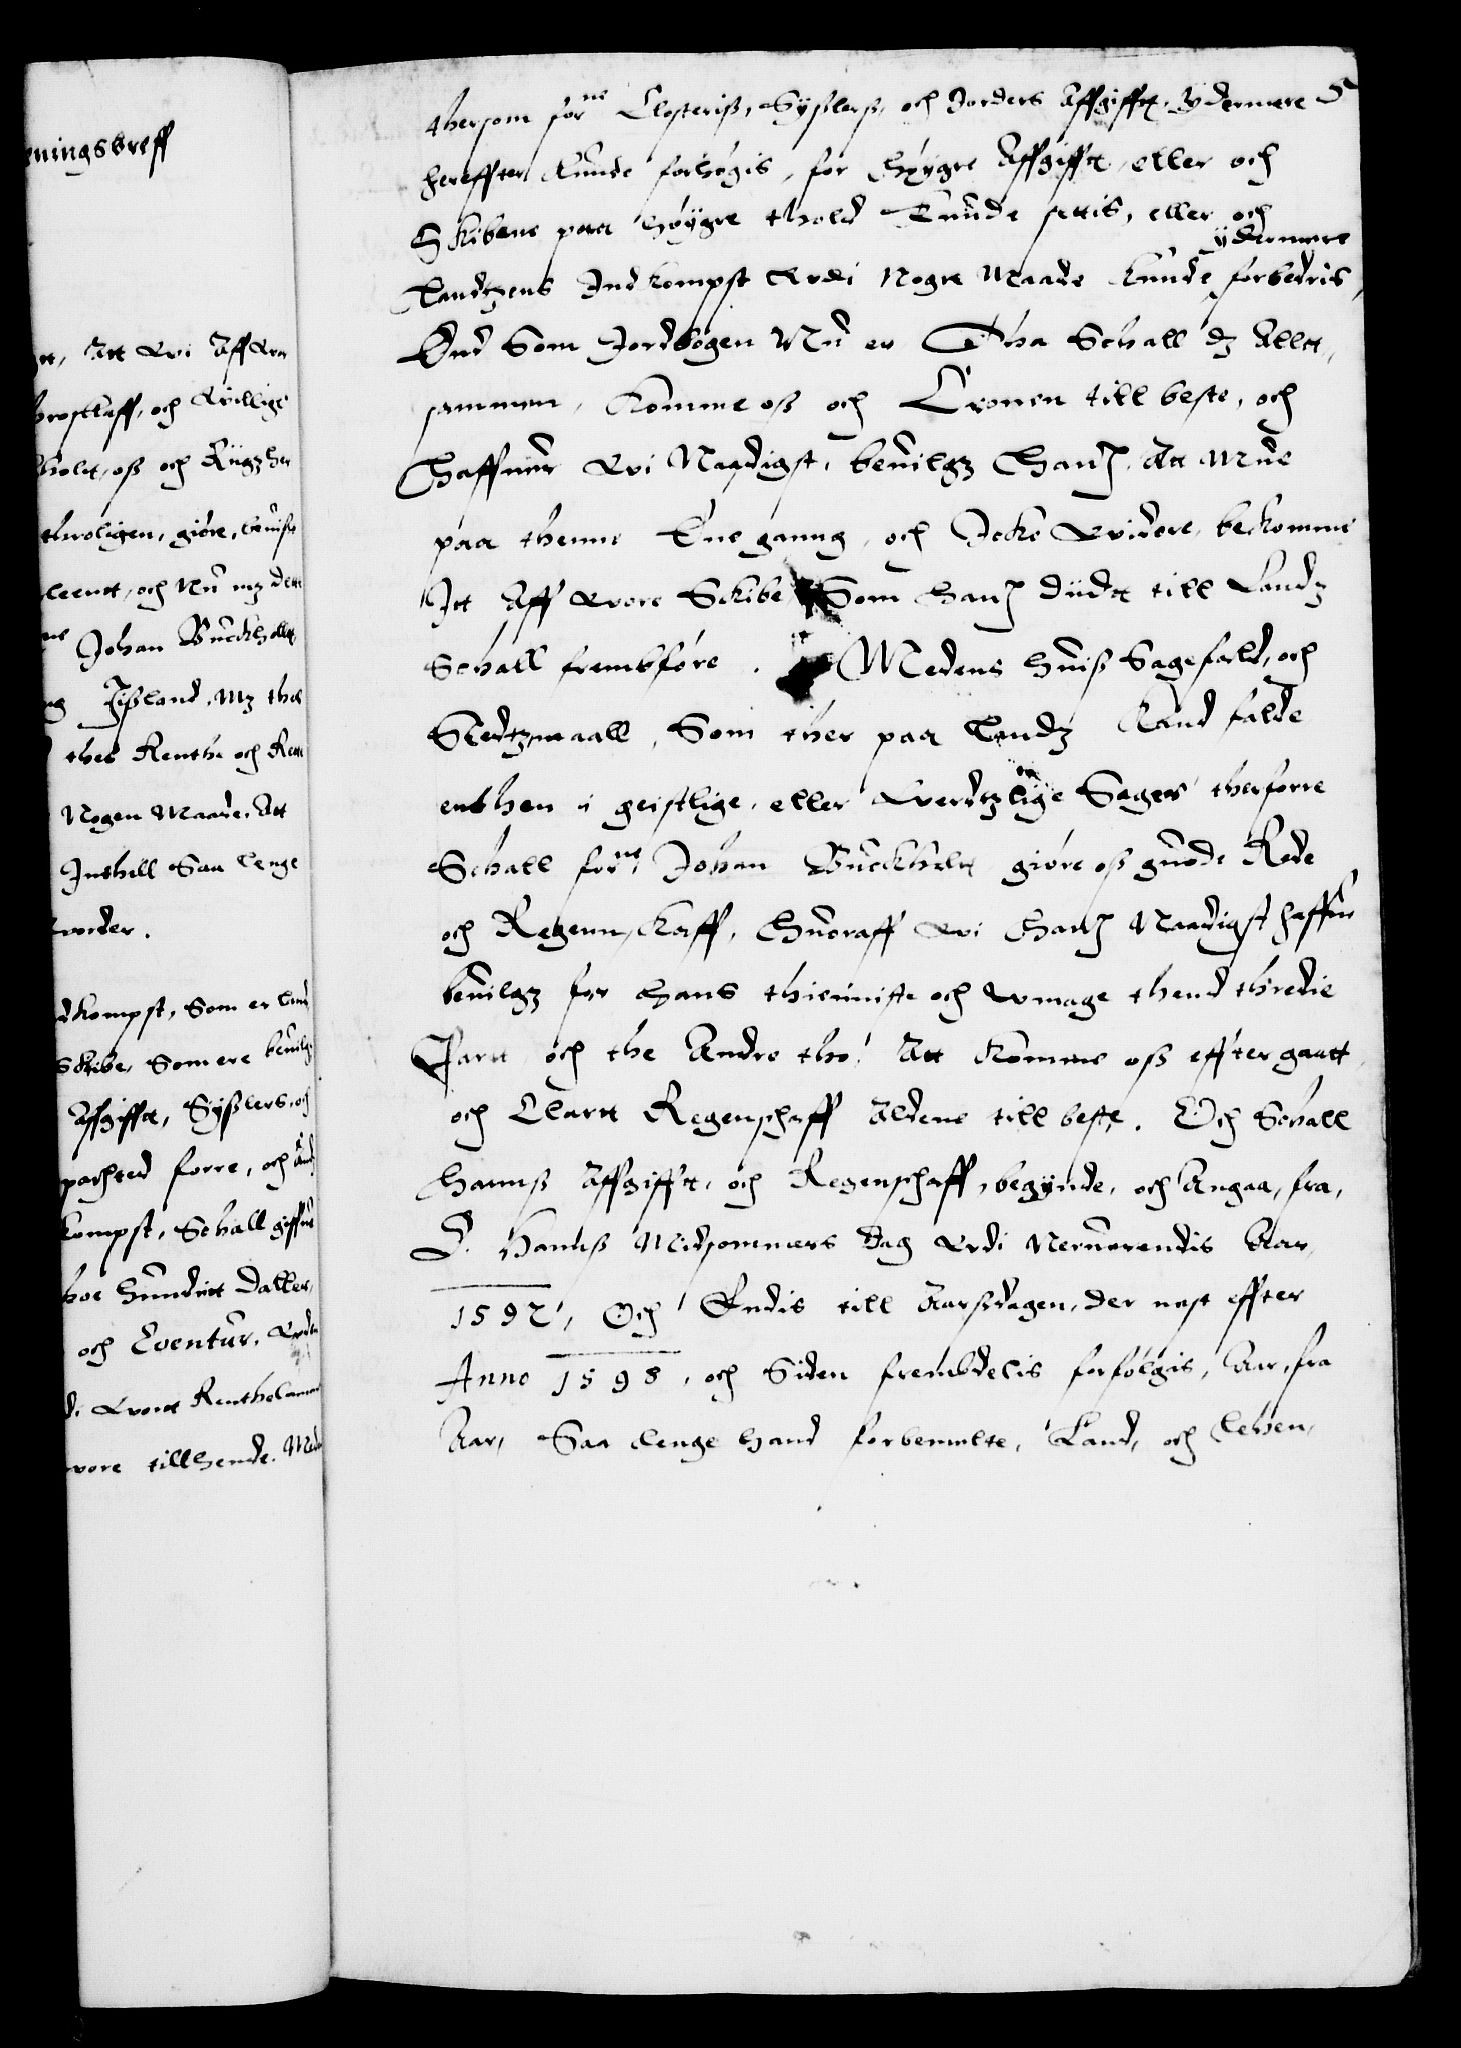 eningsbreff
tt, Att wi Aff wor
prosttaff, och willige
holt, oß och Rigz her
throligen, giøre, beuise
leentt, och Nu mz dette
Johan Buckholtt
Jißland, Mz thet
thes Renthe och Rette
Nogen Maade, Att
Inthill Saa lenge
worder.
dkompst, Som er land
Skibe, Som ere beuilg
Affgifft, Sysslers, och
pachted forre, och And
kompst, Schall giffue
hoe hundritt Daller,
och Eventur, Wdi
di wortt Renthecamer
wore tillhende. Med
thersom forne Closteris, Sysslers, och Jorders Affgifft, Ydermere 5
hereffter kunde forhøgis, for høygre Affgifft, eller och
Skibene paa høygre thold kunde settis, eller och
ydermere
Landzens Indkompst wdi Nogre Maade kunde forbedris,
End Som Jordbogen Nu er Tha Schall dz Alltt,
sammen, komme oß och Cronen till beste, och
Haffuer wi Naadigst, beuilgz Hannem, Att Mue
paa thenne Ene ganng, och Icke widere, bekomme
Itt Aff wore Skibe Som hannem didtt till Landz
Schall frembføre. Medens huis Sagefald, och
Stedtzmaall, Som ther paa Landz kand falde
enthen i geistlige, eller werdtzlige Sager therforre
Schall forne Johan Buckholtt giøre oß guode Rede
och Regennskaff, Huoraff wi Hannem Naadigst haffue
beuilgz for hans thienniste och wmage thend thredie
Partt och the Andre tho, Att komme oß effter gaatt
och Clartt Regenschaff Aldene till beste. Och Schall
hannß Affgifft, och Regenschaff, begynde, och Angaa, fra,
S. hannß Midsommers dag wdi Neruerendis Aar
1597, Och Endis till Aarßdagen, der nest effter
Anno 1598, och Siden frembdelis forfølgis, Aar, fra
Aar, Saa lenge hand forbemelte, Land, och lehen,